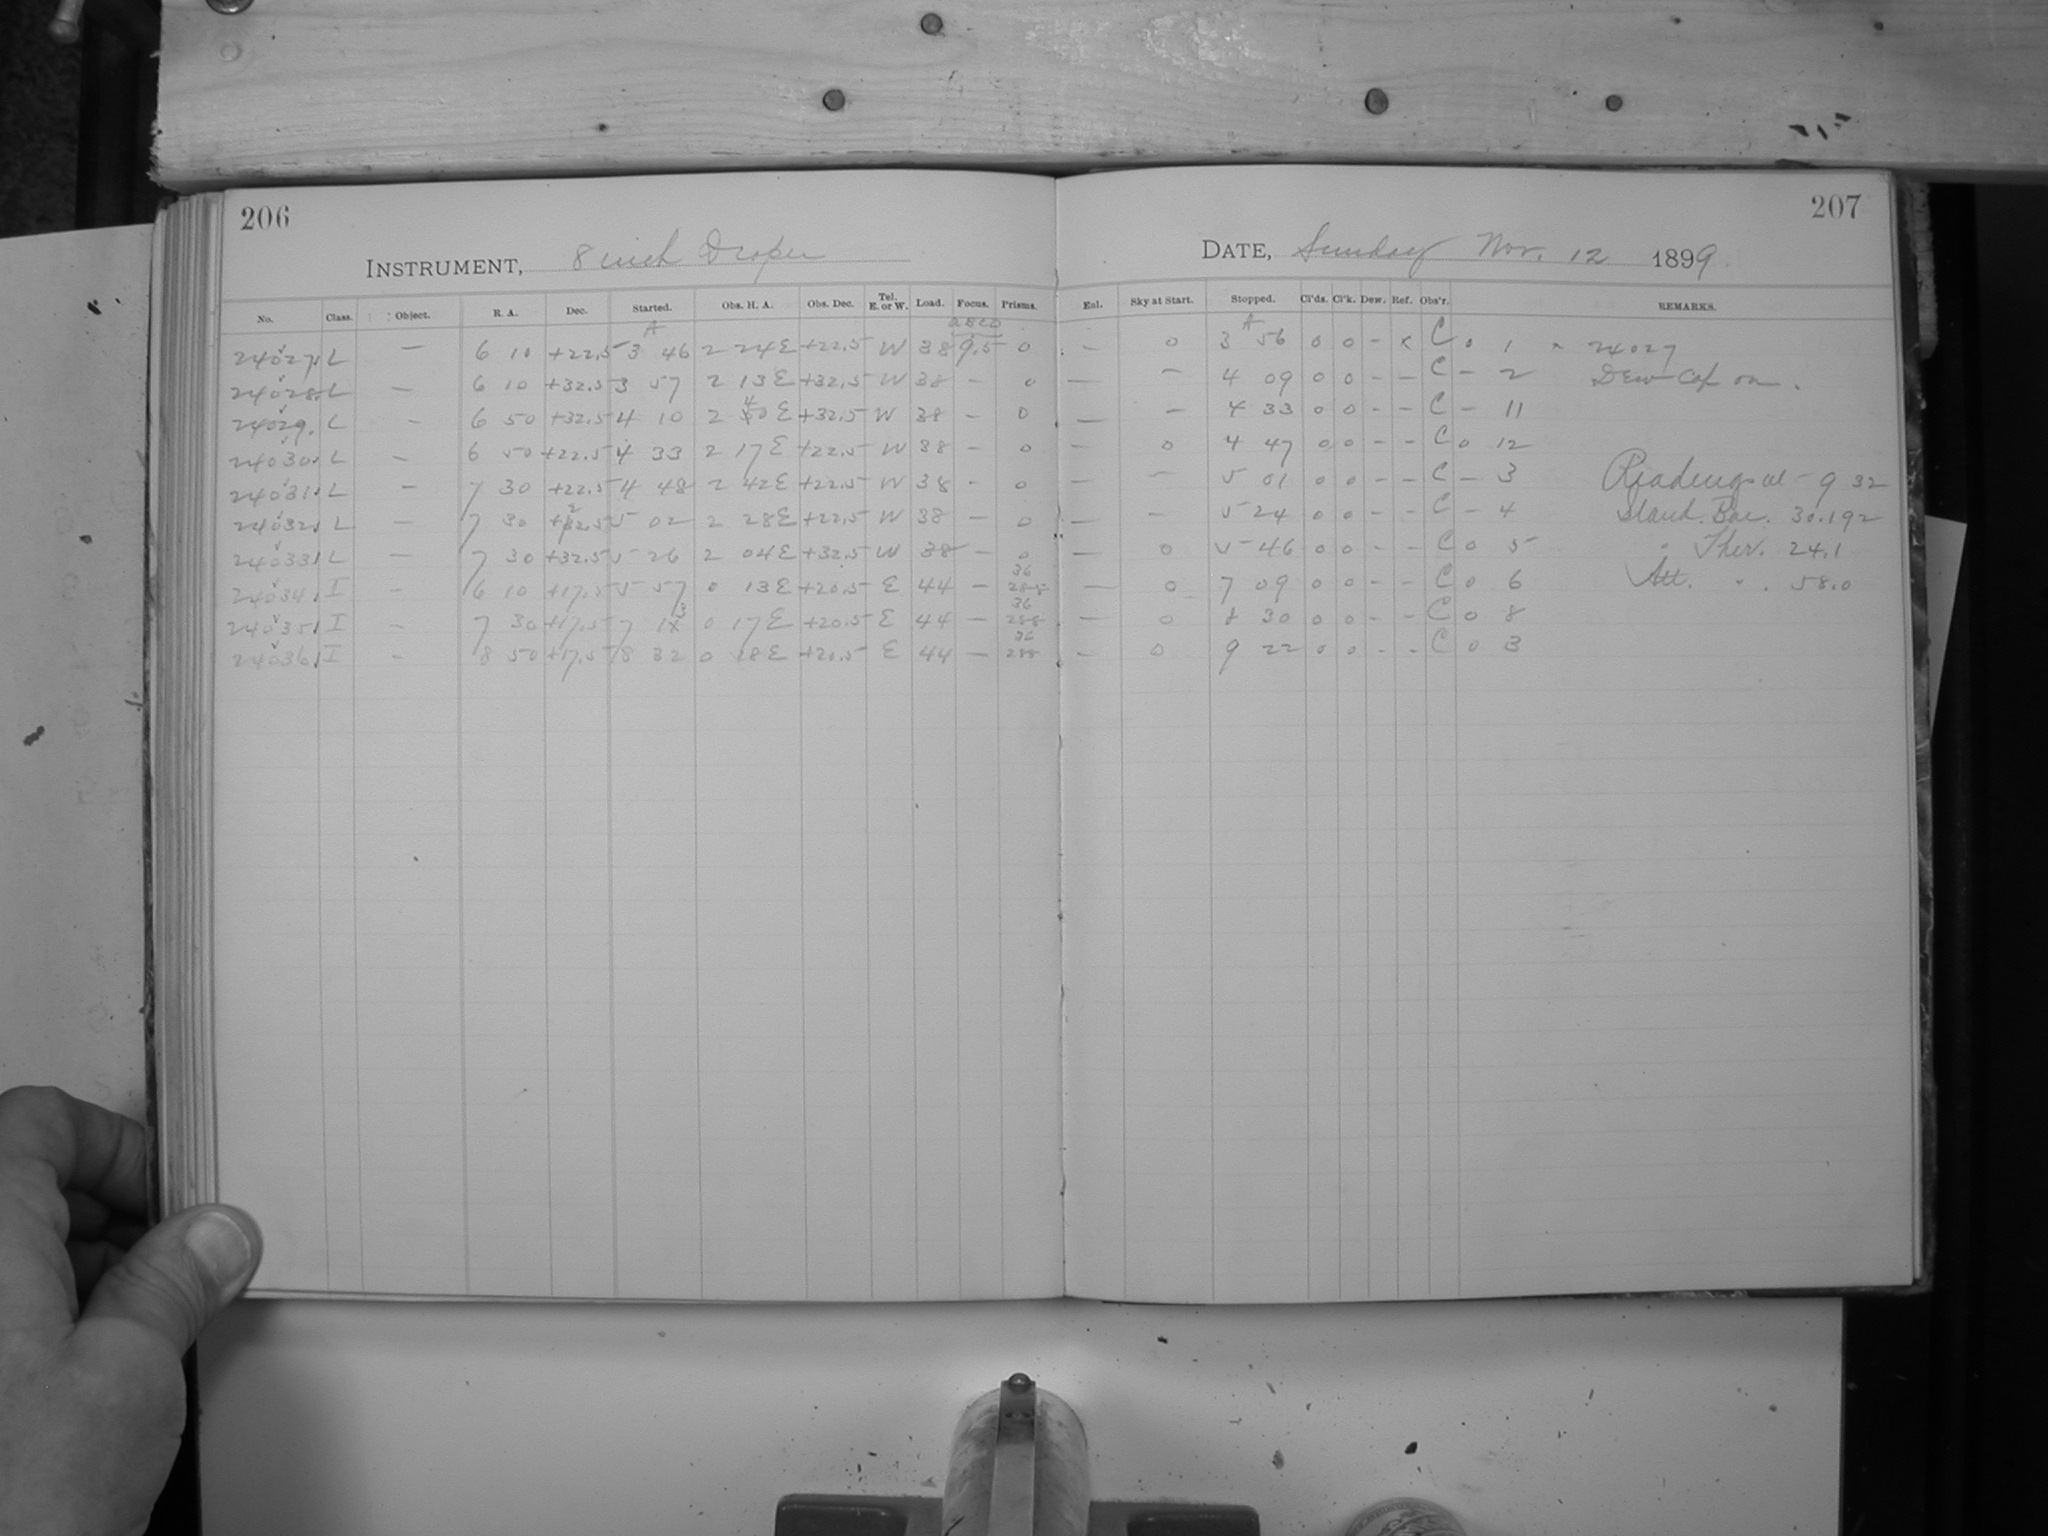 206
INSTRUMENT, 8 inch Draper
No. Class. Object. R. A. Dec. Started. Obs. H. A. Obs. Dec. Tel. E. or W. Load. Focus. Prisms.
A ABCD
24027 L — 6 10 +22.5 3 46 2 24 E +22.5 W 38 9.5 0
24028 L — 6 10 +32.5 3 57 2 13 E +32.5 W 38 — 0
24029 L — 6 50 +32.5 4 10 2 40 E +32.5 W 38 — 0
24030 L — 6 50 +22.5 4 33 2 17 E +22.5 W 38 — 0
24031 L — 7 30 +22.5 4 48 2 42 E +22.5 W 38 — 0
24032 L — 7 30 +22.5 5 02 2 28 E +22.5 W 38 — 0
24033 L — 7 30 +32.5 5 26 2 04 E +32.5 W 38 — 0
24034 I — 6 10 +17.5 5 57 0 13 E +20.5 E 44 — 36 288
24035 I — 7 30 +17.5 7 13 0 17 E +20.5 E 44 — 36 288
24036 I — 8 50 +17.5 8 32 0 18 E +20.5 E 44 — 36 288
207
DATE, Sunday Nov. 12 1899
Enl. Sky at Start. Stopped. Cl'ds. Cl'k. Dew. Ref. Obs'r. REMARKS.
A
— 0 3 56 0 0 - x C 0 1 x 24027
— — 4 09 0 0 - - C — 2 Dew cap on.
— — 4 33 0 0 - - C — 11
— 0 4 47 0 0 - - C 0 12
— — 5 01 0 0 - - C — 3 Readings at — 9 32
— — 5 24 0 0 - - C — 4 Stand. Bar. 30.192
— 0 5 46 0 0 - - C 0 5 " Ther. 24.1
— 0 7 09 0 0 - - C 0 6 Att. " 58.0
— 0 8 30 0 0 - - C 0 8
— 0 9 22 0 0 - - C 0 3